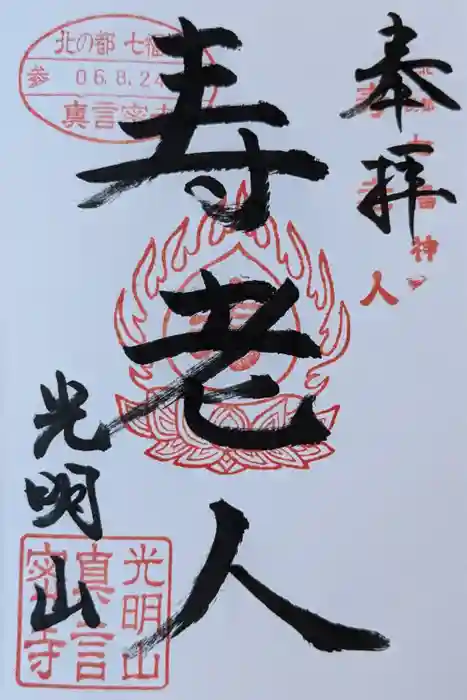 奉拝
寿老人
光明山
北の都 七福
参 06.8.24
真言密寺
光明山
真言
密寺
神
人